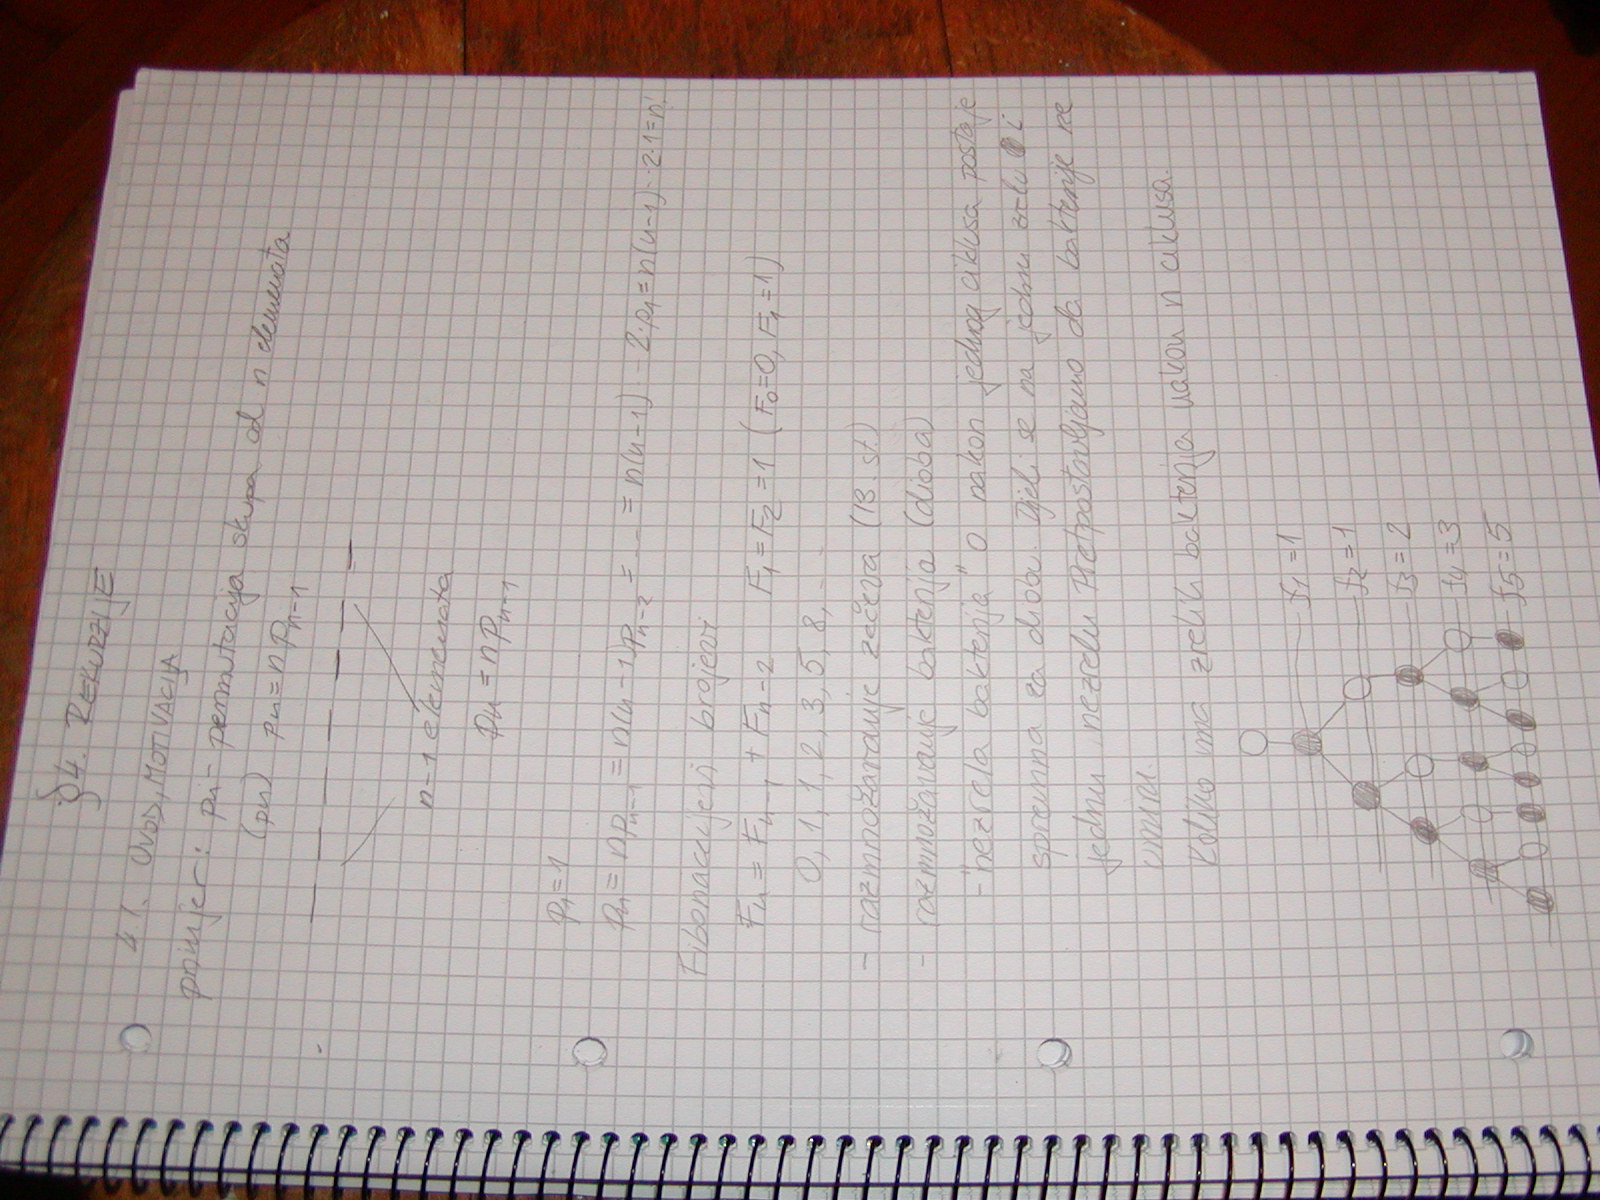 §4. REKURZIJE
4.1. UVOD, MOTIVACIJA
primjer: pn - permutacija skupa od n elemenata
(pn) pn = n Pn-1
n-1 elemenata
pn = n Pn-1
P1 = 1
pn = n Pn-1 = n(n-1)Pn-2 = ... = n(n-1)...2·p1 = n(n-1)...2·1 = n!
Fibonaccijevi brojevi
Fn = Fn-1 + Fn-2 F1 = F2 = 1 (F0=0, F1=1)
0, 1, 1, 2, 3, 5, 8, ...
- razmnožavanje zečeva (13. st)
- razmnožavanje bakterija (dioba)
- "nezrela bakterija" O nakon jednog ciklusa postaje
spremna za diobu. Dijeli se na jednu zrelu i
jednu nezrelu. Pretpostavljamo da bakterije ne
umiru.
Koliko ima zrelih bakterija nakon n ciklusa.
f1 = 1
f2 = 1
f3 = 2
f4 = 3
f5 = 5